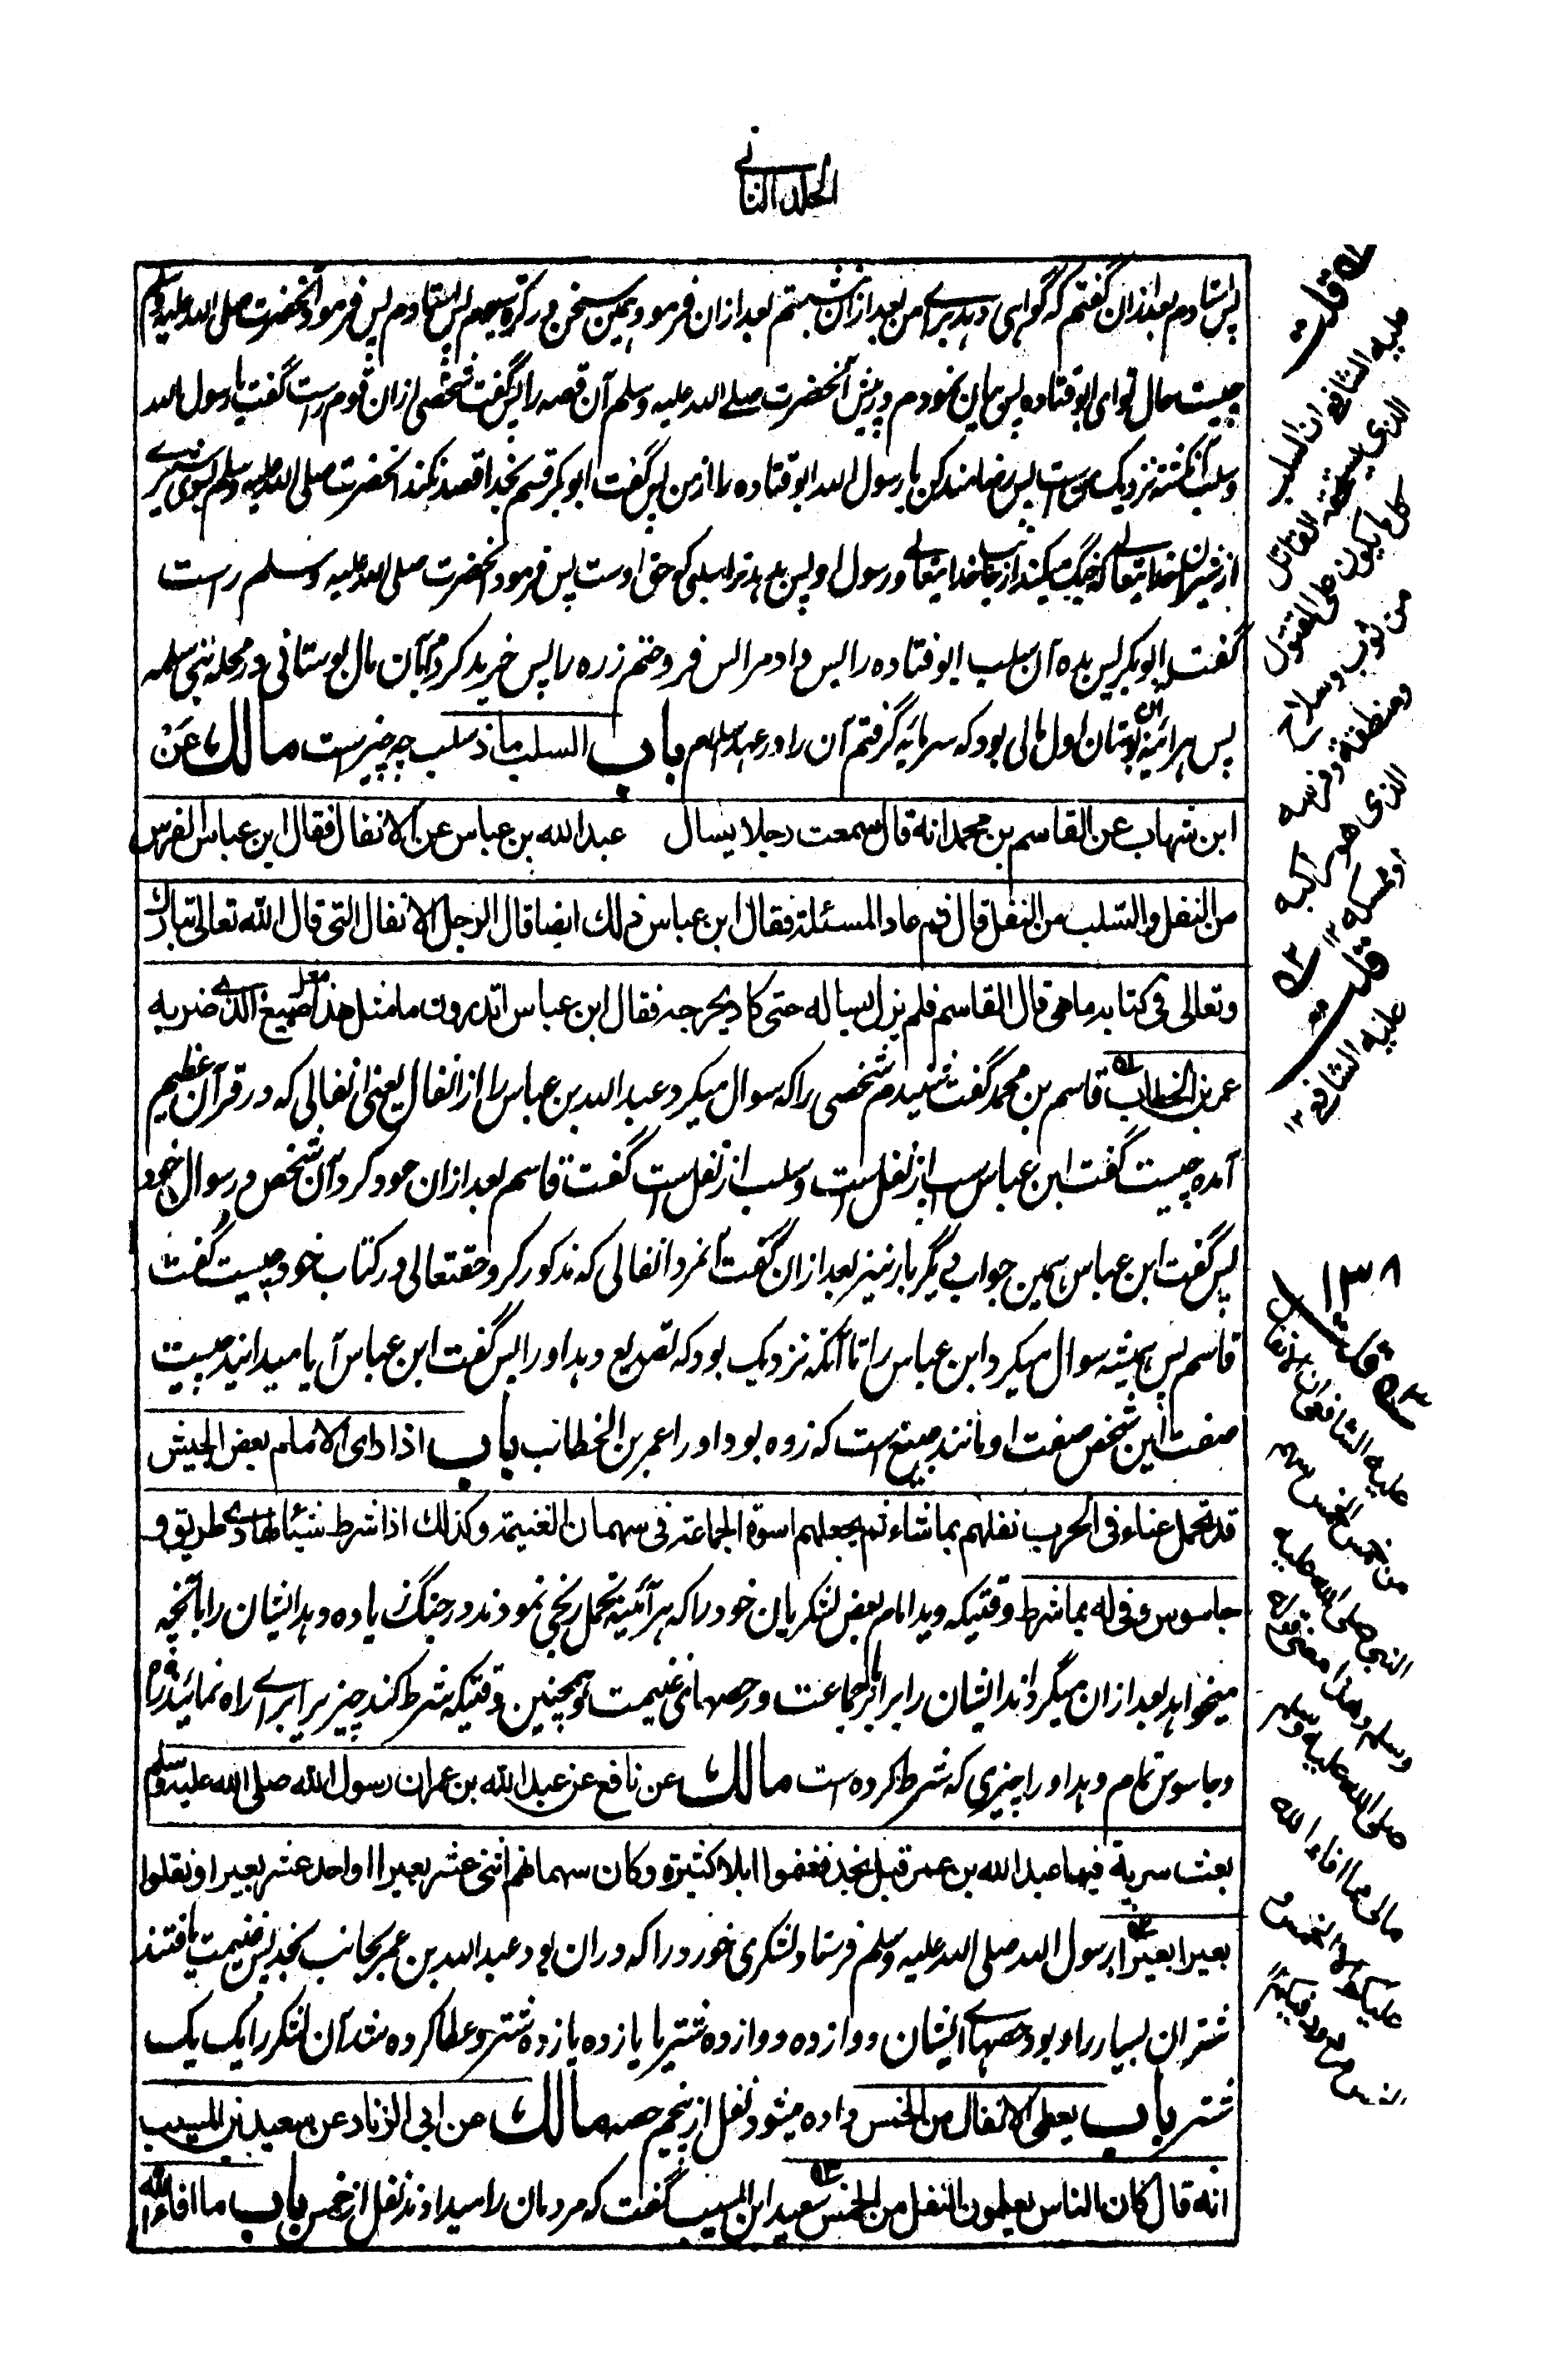 الجلد الثاني
پس استادم بعد ازان گفتم که گواهی دهد برای من بعد ازان نشستم بعد ازان فرمود همین سخن در کرة سیوم پس استادم پس فرمود آنحضرت صلی الله علیه وسلم
چیست حال تو ای ابو قتاده پس بیان نمودم در پیش آنحضرت صلے الله علیه وسلم آن قصه را پس گفت شخصی ازان قوم راست گفت یا رسول الله
وسلب آن کشته نزدیک من ست پس رضامند کن یا رسول الله ابو قتاده را از من پس گفت ابو بکر قسم بخدا قصد نکند آنحضرت صلی الله علیه وسلم بسوی شیرے
از شیران خدایتعالے که جنگ میکند از جانب خدایتعالے ورسول او پس بدهد ترا سلبی که حق اوست پس فرمود آنحضرت صلی الله علیه وسلم راست
گفت ابو بکر پس بده آن سلب ابو قتاده را پس داد مرا پس فروختم زره را پس خرید کردم بآن مال بوستانی در محله بنی سلمه
پس هر آئینه این بوستان اول مالی بود که سرمایه گرفتم آن را در عهد اسلام باب السلب ماذ سلب چه چیز ست مالك عن
ابن شهاب عن القاسم بن محمد انه قال سمعت رجلا يسال عبد الله بن عباس عن الانفال فقال ابن عباس الفرس
من النفل والسلب من النفل قال ثم عاد المسئلة فقال ابن عباس ذلك ايضا قال الرجل الانفال التي قال الله تعالى تبارك
وتعالى في كتابه ما هي قال القاسم فلم يزل يساله حتى كاد يحرجه فقال ابن عباس اتدرون ما مثل هذا مثل صبيغ الذے ضربه
عمر بن الخطاب قاسم بن محمد گفت شنیدم شخصی را که سوال میکرد عبد الله بن عباس را از انفال یعنی انفالی که در قرآن عظیم
آمده چیست گفت ابن عباس اسپ از نفل ست وسلب از نفل ست گفت قاسم بعد ازان عود کرد آن شخص در سوال خود
پس گفت ابن عباس همین جواب دیگر بار نیز بعد ازان گفت آنمرد انفالی که مذکور کرد حقتعالی در کتاب خود چیست گفت
قاسم پس همیشه سوال میکرد ابن عباس را تا آنکه نزدیک بود که تصدیع دهد او را پس گفت ابن عباس آیا میدانید چیست
صفت این شخص صفت او مانند صبیغ ست که زده بود او را عمر بن الخطاب باب اذا راى الامام بعض الجيش
قد تحمل عناء في الحرب نفلهم بما شاء ثم يجعلهم اسوة الجماعة في سهمان الغنيمة وكذلك اذا شرط شيئا لهادى طريق و
جاسوس وفى له بما شرط وقتیکه دید امام بعض لشکریان خود را که هر آئینه تحمل رنجی نمودند در جنگ زیاده دهد ایشان را بآنچه
میخواهد بعد ازان میگرداند ایشان را برابر جماعت در حصهای غنیمت وهمچنین وقتیکه شرط کند چیزیرا برای راه نمائیده راه
وجاسوس تمام دهد او را چیزی که شرط کرده است مالك عن نافع عن عبد الله بن عمر ان رسول الله صلى الله عليه وسلم
بعث سرية فيها عبد الله بن عمر قبل نجد فغنموا ابلا كثيرة وكان سهمانهم اثنى عشر بعيرا او احد عشر بعيرا ونفلوا
بعيرا بعيرا رسول الله صلی الله علیه وسلم فرستاد لشکری خورد را که دران بود عبد الله بن عمر بجانب نجد پس غنیمت یافتند
شتران بسیار را وبود حصهاے ایشان دوازده دوازده شتر یا یازده یازده شتر وعطا کرده شد آن لشکر را یک یک
شتر باب يعطى الانفال من الخمس داده میشود نفل از پنجم حصه مالك عن ابي الزناد عن سعيد بن المسيب
انه قال كان الناس يعطون النفل من الخمس سعید ابن المسیب گفت که مردمان را میدادند نفل از خمس باب ما افاء الله
قلت
عليه الشافعے ان السلب
الذى يستحقه القاتل
كل ما يكون على المقتول
من ثوب وسلاح
ومنطقة وفرسه
الذى هو راكبه
او ممسكه ١٢
قلت
عليه الشافعے ١٢
١٣٨
قلت
عليه الشافعے ان الانفال
من خمس الخمس سهم
النبى صلى الله عليه
وسلم وهذا معنى قوله
صلى الله عليه وسلم
مالى مما افاء الله
عليكم الا الخمس
والخمس مردود فيكم